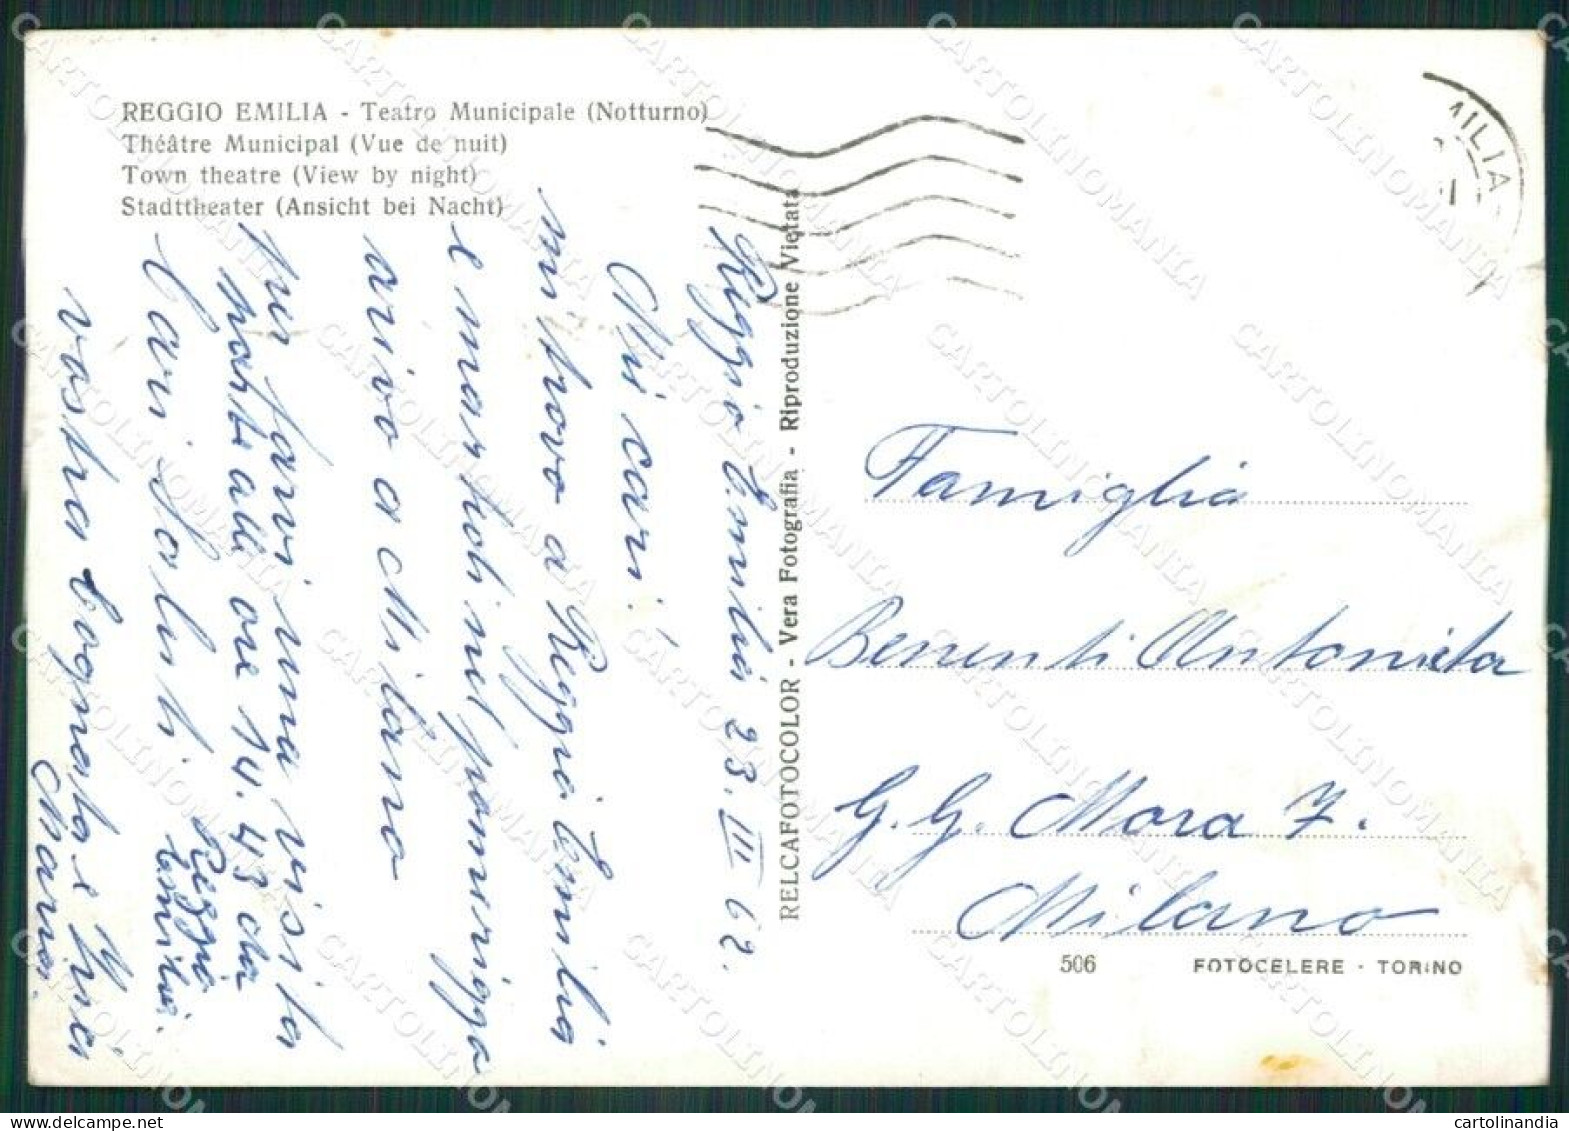 REGGIO EMILIA - Teatro Municipale (Notturno)
Théâtre Municipal (Vue de nuit)
Town theatre (View by night)
Stadttheater (Ansicht bei Nacht)
MILIA
Reggio Emilia 23.III 62.
Miei cari!
mi trovo a Reggio Emilia
e martedi nel pomeriggio
arivo a Milano
per farvi una visita
parto alle ore 14.43 da
Reggio
Emilia.
Cari Saluti
vostra cognata e zia
Maria.
RELCAFOTOCOLOR - Vera Fotografia - Riproduzione Vietata
Famiglia
Benenti Antonieta
G. G. Mora 7.
Milano
506 FOTOCELERE - TORINO
CARTOLINOMANIA
delcampe.net
cartolinandia